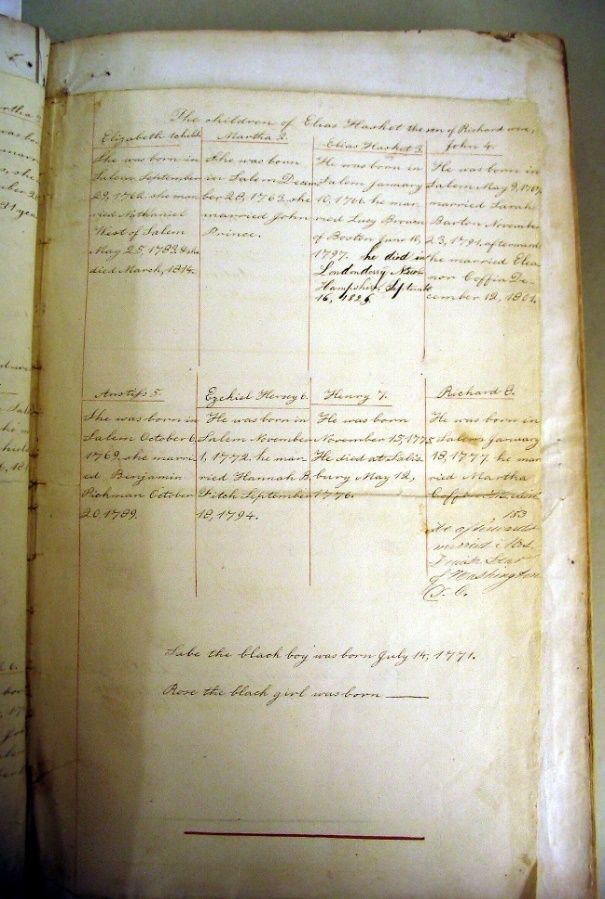 The children of Elias Hasket the son of Richard were,
Elizabeth 1 child
She was born in
Salem, September
29, 1762. she mar
ried Nathaniel
West of Salem
May 25, 1783. & she
died March, 1814.
Martha 2.
She was born
in Salem Decem
ber 28, 1763, she
married John
Prince.
Elias Hasket 3.
He was born in
Salem January
10, 1766. he mar
ried Lucy Brown
of Boston June 11,
1797. he died in
Londonderry New
Hampshire, Septemb
16, 1826
John 4.
He was born in
Salem May 9,
married Sarah
Barton November
23, 1791. afterward
he married Elea
nor Coffin De-
cember 12, 1802.
Anstiss 5.
She was born in
Salem October 6,
1769. she marri
ed Benjamin
Pickman October
20, 1789.
Ezekiel Hersey 6.
He was born in
Salem November
1, 1772. he mar
ried Hannah B.
Fitch September
18, 1794.
Henry 7.
He was born
November 15, 1775
He died at Salis
bury May 12,
1776.
Richard 8.
He was born in
Salem January
18, 1777. he mar
ried Martha
Coffin
183
he afterwards
married Mrs.
of Washington
D. C.
Sabe the black boy was born July 14, 1771.
Rose the black girl was born ——